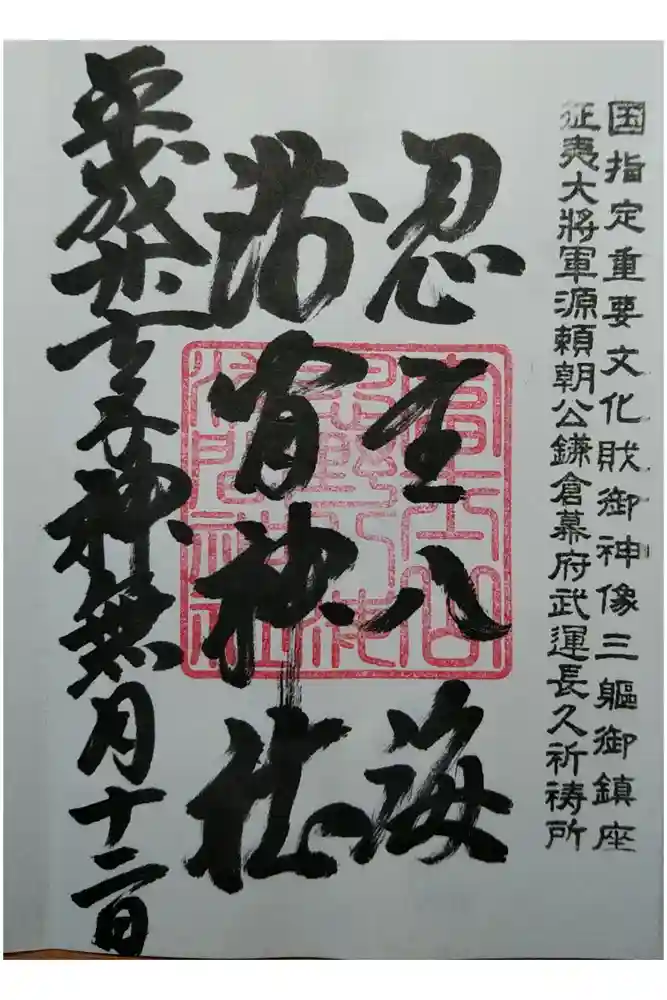 国指定重要文化財御神像三軀御鎮座
征夷大将軍源頼朝公鎌倉幕府武運長久祈祷所
忍野八海
浅間神社
平成 年神無月十二日